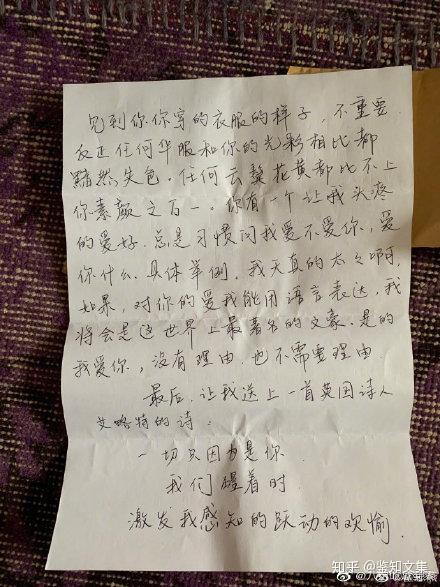 见到你你穿的衣服的样子，不重要
反正任何华服和你的光彩相比都
黯然失色，任何云鬓花黄都比不上
你素颜之百一。你有一个让我头疼
的爱好，总是习惯问我爱不爱你，爱
你什么，具体举例，我天真的太太啊，
如果，对你的爱我能用语言表达，我
将会是这世界上最著名的文豪。是的
我爱你，没有理由，也不需要理由
最后，让我送上一首英国诗人
艾略特的诗：
一切只因为是你
我们碰着时
激发我感知的跃动的欢愉
知乎 @鉴知文集